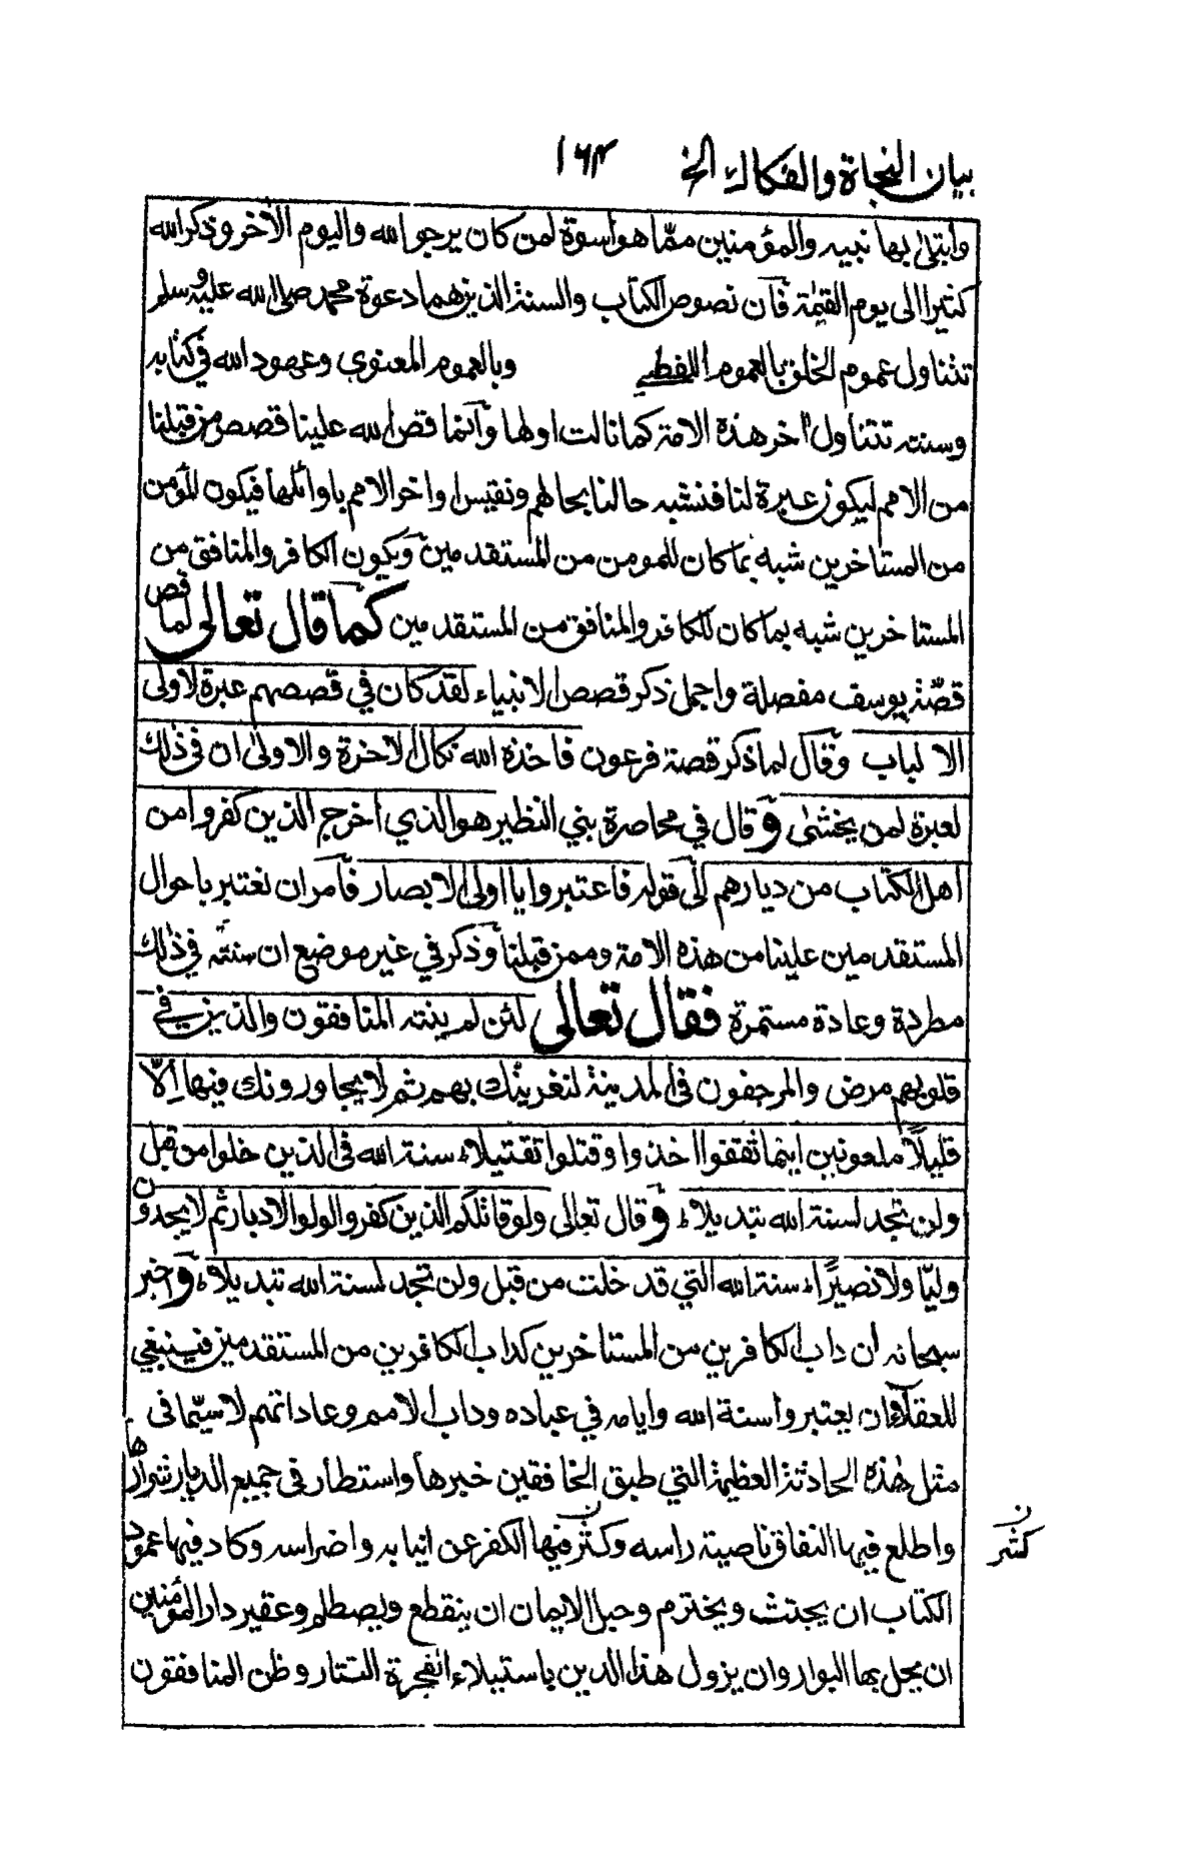 بيان النجاة والفكاك الخ ١٦٤
وابتلى بها نبيه والمؤمنين مما هو اسوة لمن كان يرجو الله واليوم الآخر وذكر الله
كثيرا الى يوم القيمة فان نصوص الكتاب والسنة الذين هما دعوة محمد صلى الله عليه وسلم
تتناول عموم الخلق بالعموم اللفظي وبالعموم المعنوى وعهود الله في كتابه
وسنته تتناول آخر هذه الامة كما نالت اولها وانما قص الله علينا قصص من قبلنا
من الامم ليكون عبرة لنا فنشبه حالنا بحالهم ونقيس اواخر الامم باوائلها فيكون للمؤمن
من المستاخرين شبه بما كان للمومن من المستقدمين ويكون الكافر والمنافق من
المستاخرين شبه بما كان للكافر والمنافق من المستقدمين كما قال تعالى لما قص
قصة يوسف مفصلة واجمل ذكر قصص الانبياء لقد كان في قصصهم عبرة لاولى
الالباب وقال لما ذكر قصة فرعون فاخذه الله نكال الاخرة والاولى ان في ذلك
لعبرة لمن يخشى وقال في محاصرة بني النظير هو الذي اخرج الذين كفروا من
اهل الكتاب من ديارهم الى قوله فاعتبروا يا اولى الابصار فامر ان نعتبر باحوال
المستقدمين علينا من هذه الامة وممن قبلنا وذكر في غير موضع ان سنته في ذلك
مطردة وعادة مستمرة فقال تعالى لئن لم ينته المنافقون والذين في
قلوبهم مرض والمرجفون في المدينة لنغرينك بهم ثم لا يجاورونك فيها الّا
قليلاً ملعونين اينما ثقفوا اخذوا وقتلوا تقتيلاء سنة الله في الذين خلوا من قبل
ولن تجد لسنة الله تبديلاء وقال تعالى ولو قاتلكم الذين كفروا لولوا الادبار ثم لا يجدون
وليّا ولا نصيرًاء سنة الله التي قد خلت من قبل ولن تجد لسنة الله تبديلاء واخبر
سبحانه ان داب الكافرين من المستاخرين كداب الكافرين من المستقدمين فينبغي
للعقلاء ان يعتبروا سنة الله وايامه في عباده وداب الامم وعاداتهم لا سيّما فى
مثل هذه الحادثة العظيمة التي طبق الخافقين خبرها واستطار فى جميع الديار شرارها
واطلع فيها النفاق ناصية راسه وكثر فيها الكفر عن انيابه واضراسه وكاد فيها عمود
الكتاب ان يجتث ويخترم وحبل الايمان ان ينقطع ويصطلم وعقير دار المؤمنين
ان يحل بها البوار وان يزول هذا الدين باستيلاء الفجرة التتار وظن المنافقون
ن
كشر